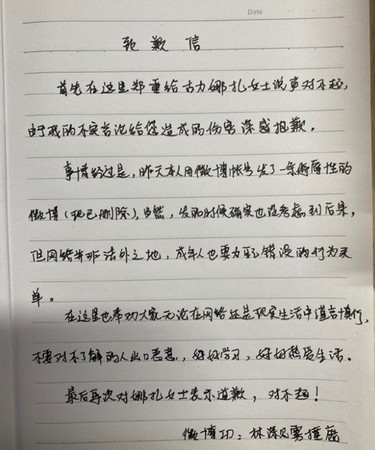 Date
致歉信
首先在这里郑重给古力娜扎女士说声对不起,
对于我的不实言论给您造成的伤害深感抱歉。
事情经过是,昨天本人用微博账号发了一条侮辱性的
微博(现已删除),当然,发的时候确实也没考虑到后果,
但网络并非法外之地,成年人也要为了错误的行为买
单。
在这里也奉劝大家无论在网络还是现实生活中谨言慎行,
不要对不了解的人出口恶意,好好学习,好好热爱生活。
最后再次对娜扎女士表示道歉,对不起!
微博ID:林深见雾撞